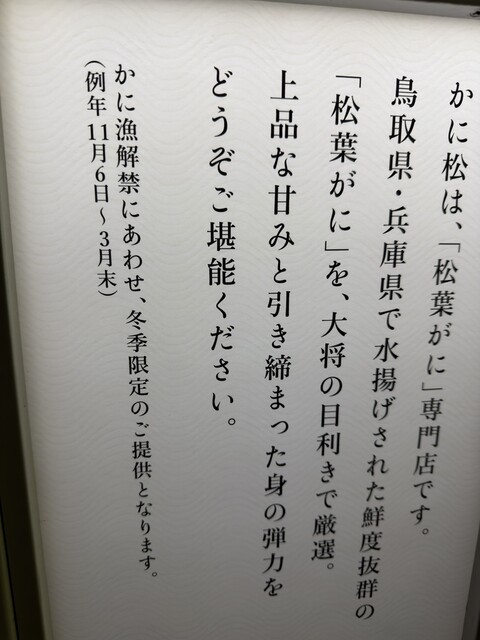 かに松は、「松葉がに」専門店です。
鳥取県・兵庫県で水揚げされた鮮度抜群の
「松葉がに」を、大将の目利きで厳選。
上品な甘みと引き締まった身の弾力を
どうぞご堪能ください。
かに漁解禁にあわせ、冬季限定のご提供となります。
(例年11月6日〜3月末)